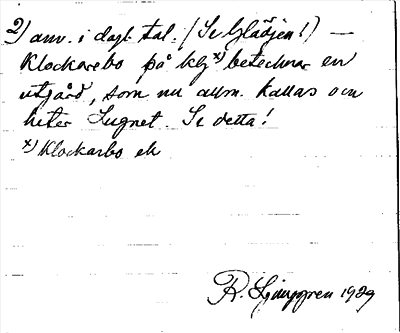 2) anv. i dagl. tal. (Se Glädjen!) —
Klockarebo på kbg x) betecknar en
utgård, som nu allm. kallas och
heter Lugnet. Se detta!
x) Klockarbo ek
R. Ljunggren 1929